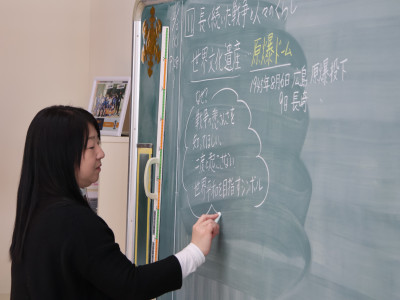 11 長く続いた戦争と人々のくらし
世界文化遺産 原爆ドーム
1945年8月6日 広島 原爆投下
9日 長崎
なぜ
戦争の悲しさを
知ってほしい
二度と起こさない
世界平和を目指すシンボル